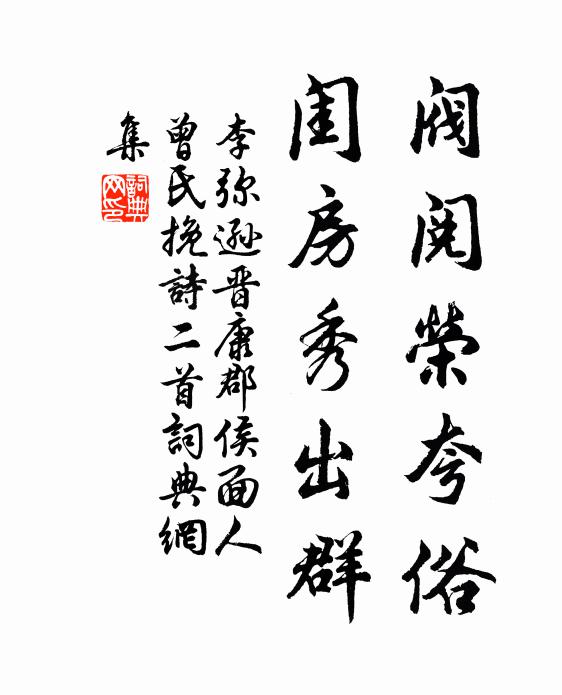 阀阅榮夸俗
闺房秀出群
李弥遜晋康郡侯面人
曾氏挽詩二首詞典網
集
詞典
网印